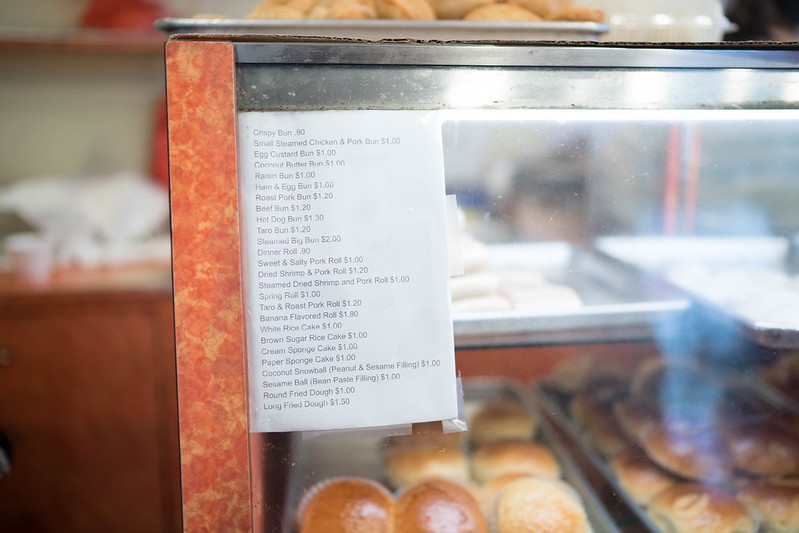 Crispy Bun .90
Small Steamed Chicken & Pork Bun $1.00
Egg Custard Bun $1.00
Coconut Butter Bun $1.00
Raisin Bun $1.00
Ham & Egg Bun $1.00
Roast Pork Bun $1.20
Beef Bun $1.20
Hot Dog Bun $1.30
Taro Bun $1.20
Steamed Big Bun $2.00
Dinner Roll .90
Sweet & Salty Pork Roll $1.00
Dried Shrimp & Pork Roll $1.20
Steamed Dried Shrimp and Pork Roll $1.00
Spring Roll $1.00
Taro & Roast Pork Roll $1.20
Banana Flavored Roll $1.80
White Rice Cake $1.00
Brown Sugar Rice Cake $1.00
Cream Sponge Cake $1.00
Paper Sponge Cake $1.00
Coconut Snowball (Peanut & Sesame Filling) $1.00
Sesame Ball (Bean Paste Filling) $1.00
Round Fried Dough $1.00
Long Fried Dough $1.50